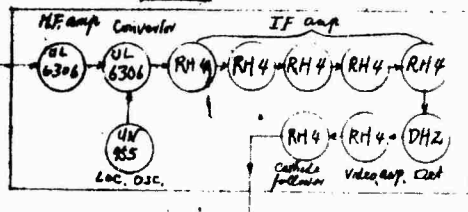 H.F. amp Convertor IF amp
UL 6306
UL 6306
RH4 RH4 RH4 RH4 RH4
UN 955
LOC. OSC.
RH4 RH4 DH2
Cathode follower
Video amp. Det